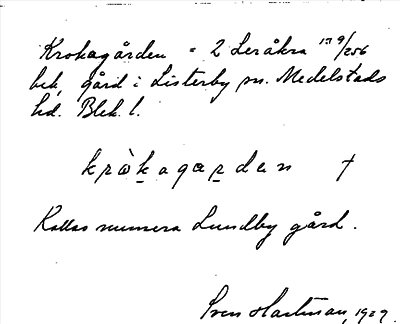 Krokagården = 2 Leråkra 17 9/256
bek. gård i Listerby sn. Medelstads
hd. Blek. l.
kròkagarden †
Kallas numera Lundby gård.
Sven Hartman, 1929